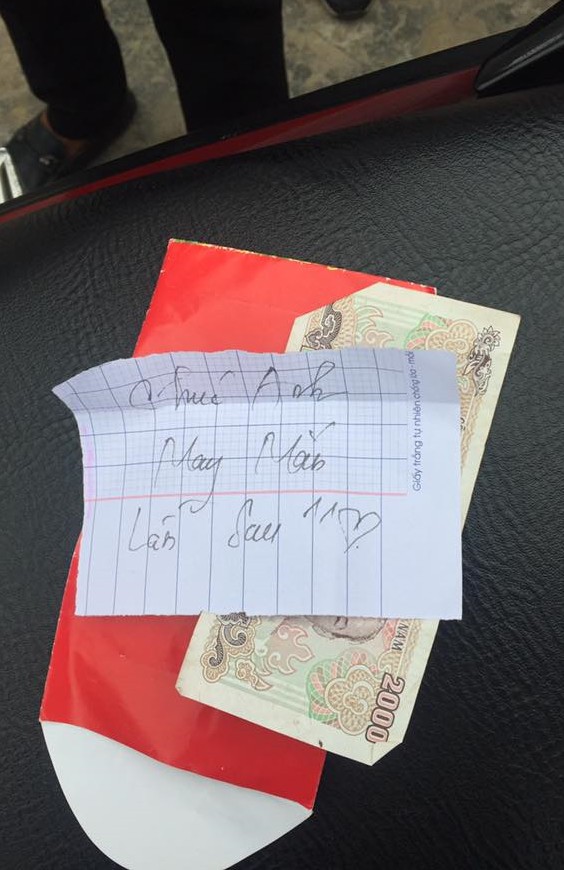 Chúc Anh
May Mắn
Lần Sau !!
Giấy trắng tự nhiên chống lóa - mỏi
NAM
2000